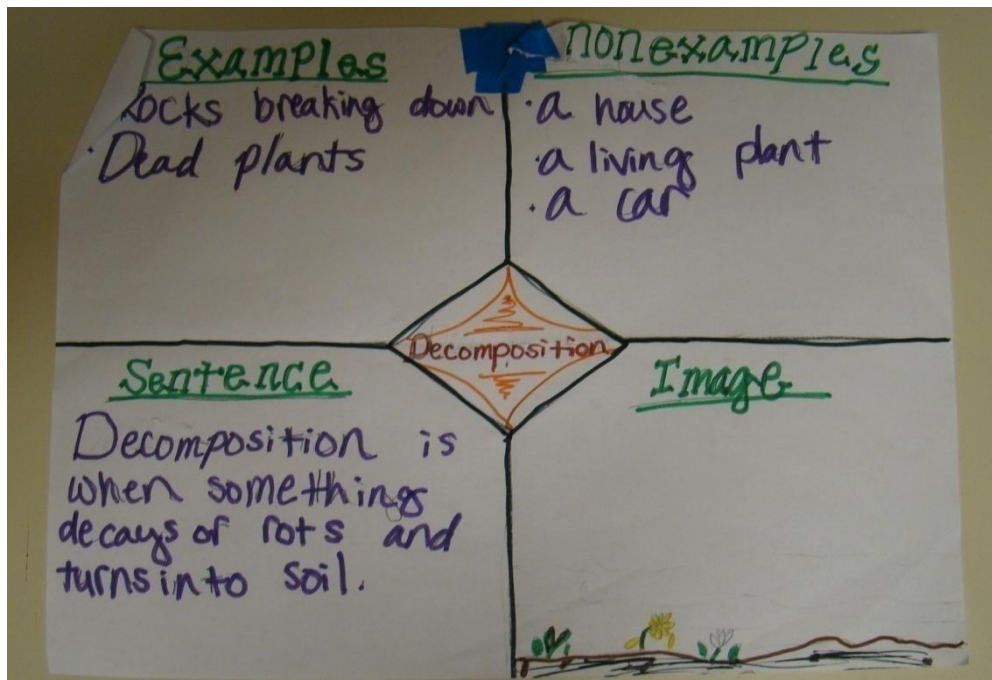 Examples
Rocks breaking down
· Dead plants
Nonexamples
· a house
· a living plant
· a car
Decomposition
Sentence
Decomposition is
when somethings
decays or rots and
turns into soil.
Image